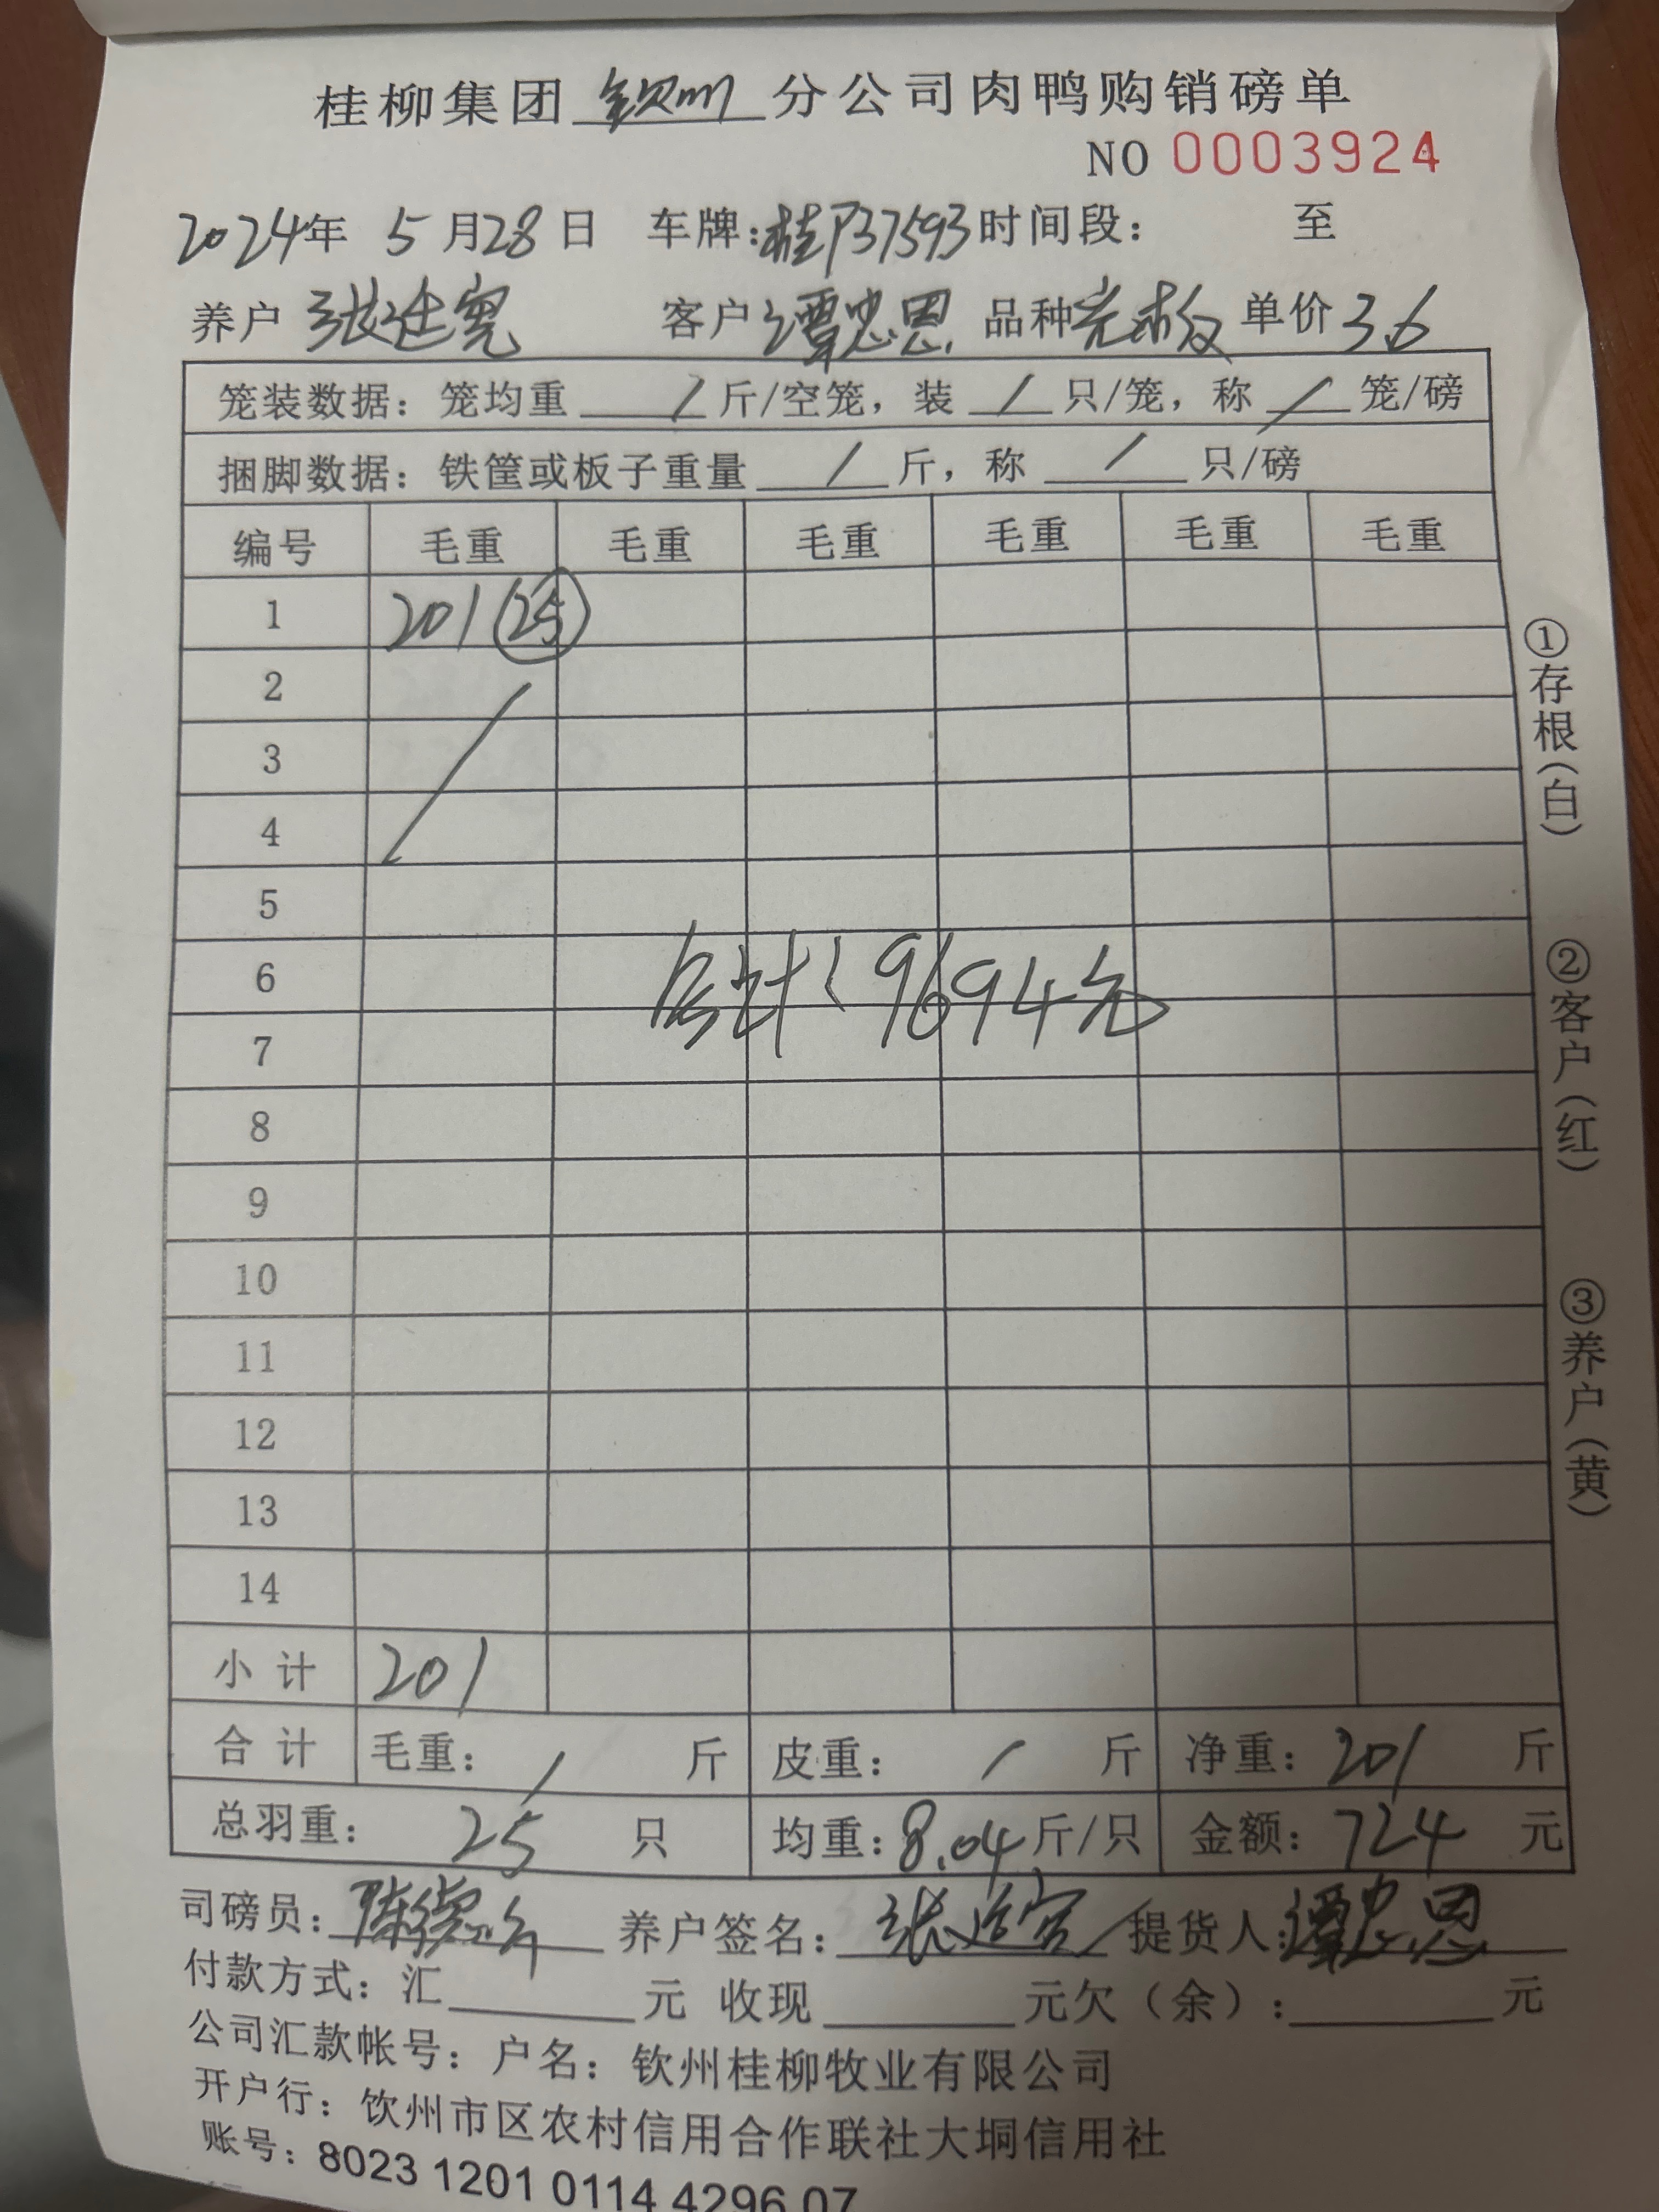 桂柳集团 钦州 分公司肉鸭购销磅单
NO 0003924
2024年 5月28日 车牌:桂P37593 时间段: 至
养户 张廷宽 客户 谭忠恩 品种 单价 3.6
笼装数据: 笼均重 / 斤/空笼, 装 / 只/笼, 称 / 笼/磅
捆脚数据: 铁筐或板子重量 / 斤, 称 / 只/磅
编号 毛重 毛重 毛重 毛重 毛重 毛重
1 201 (25)
2
3
4
5
6
合计: 9694元
7
8
9
10
11
12
13
14
小计 201
合计 毛重: / 斤 皮重: / 斤 净重: 201 斤
总羽重: 25 只 均重: 8.04 斤/只 金额: 724 元
司磅员: 养户签名: 张廷宽 提货人: 谭忠恩
付款方式: 汇 元 收现 元欠(余): 元
公司汇款帐号: 户名: 钦州桂柳牧业有限公司
开户行: 钦州市区农村信用合作联社大垌信用社
账号: 8023 1201 0114 4296 07
①存根(白)
②客户(红)
③养户(黄)